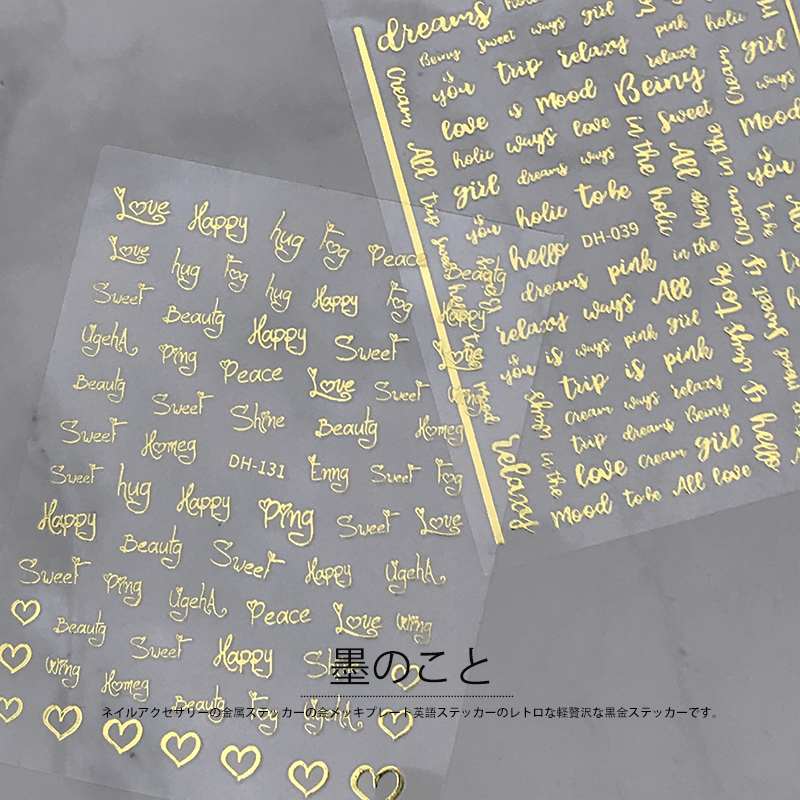 dreams
Being Sweet ways girl
pink holic
is
you
trip relaxy
relaxy
girl
Cream
love is Mood Being
ways
All
holic ways love in the
Sweet
Cream in the
Mood
girl dreams ways
All
is
you
trip
you holic to be holic
hello
to be
hello DH-039
dreams pink in the
relaxy ways All
you is ways pink girl
trip is pink
Cream ways relaxy
trip dreams Being
love Cream girl
Mood to be All love
hello
relaxy
in the
Mood
ways to be
Sweet
Love Happy hug Fog Peace
Love hug Fog hug Happy Fog Beautg
Sweet Beautg Happy Sweet Happy
UgehA Ping Peace Love Sweet Love
Beautg Sweet Shine Beautg Homeg
Sweet Homeg DH-131 Enng Sweet Fog
Sweet hug Happy Ping Sweet Love
Happy Beautg Sweet Happy UgehA
Sweet Ping UgehA Peace Love Wing
Beautg Sweet Happy
Wing Homeg Beautg UgehA
墨のこと
ネイルアクセサリーの金属ステッカーの金メッキプレート英語ステッカーのレトロな軽贅沢な黒金ステッカーです。